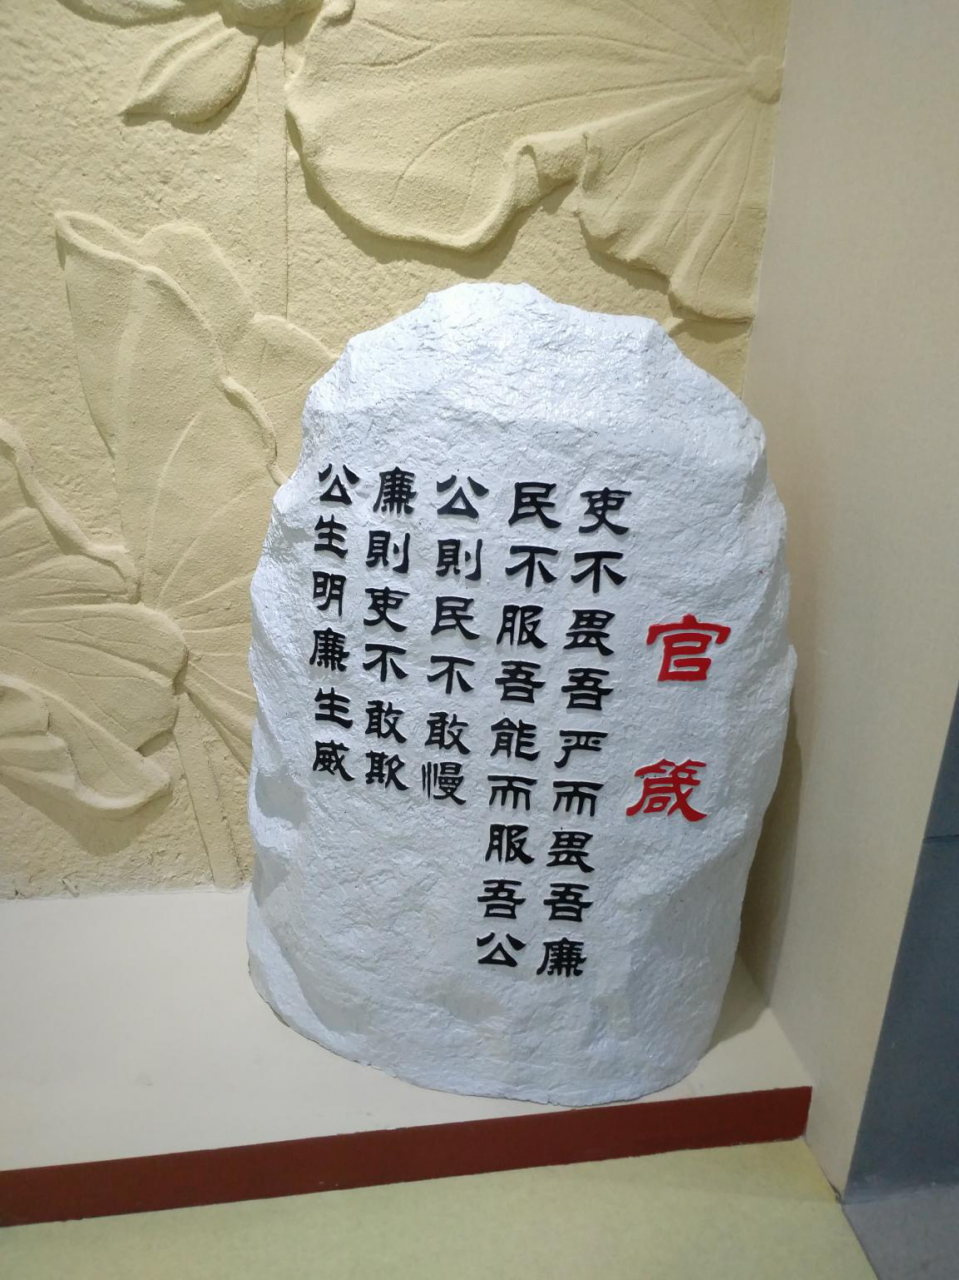 官箴
吏不畏吾严而畏吾廉
民不服吾能而服吾公
公則民不敢慢
廉則吏不敢欺
公生明廉生威